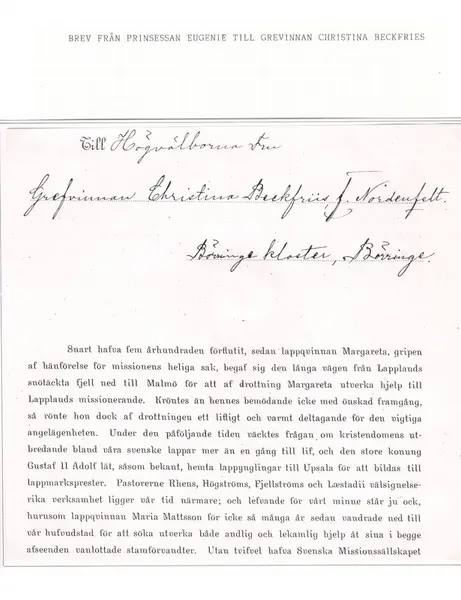 BREV FRÅN PRINSESSAN EUGENIE TILL GREVINNAN CHRISTINA BECKFRIES
Till Högvälborna Fru
Grefvinnan Christina Beckfriis f. Nordenfelt.
Börringe kloster, Börringe.
Snart hafva fem århundraden förflutit, sedan lappqvinnan Margareta, gripen
af hänförelse för missionens heliga sak, begaf sig den långa vägen från Lapplands
snötäckta fjell ned till Malmö för att af drottning Margareta utverka hjelp till
Lapplands missionerande. Kröntes än hennes bemödande icke med önskad framgång,
så rönte hon dock af drottningen ett lifligt och varmt deltagande för den vigtiga
angelägenheten. Under den påföljande tiden väcktes frågan om kristendomens ut-
bredande bland våra svenske lappar mer än en gång till lif, och den store konung
Gustaf II Adolf lät, såsom bekant, hemta lappynglingar till Upsala för att bildas till
lappmarksprester. Pastorerne Rhens, Högströms, Fjellströms och Læstadii välsignelse-
rika verksamhet ligger vår tid närmare; och lefvande för vårt minne står ju ock,
hurusom lappqvinnan Maria Mattsson för icke så många år sedan vandrade ned till
vår hufvudstad för att söka utverka både andlig och lekamlig hjelp åt sina i begge
afseenden vanlottade stamförvandter. Utan tvifvel hafva Svenska Missionssällskapet